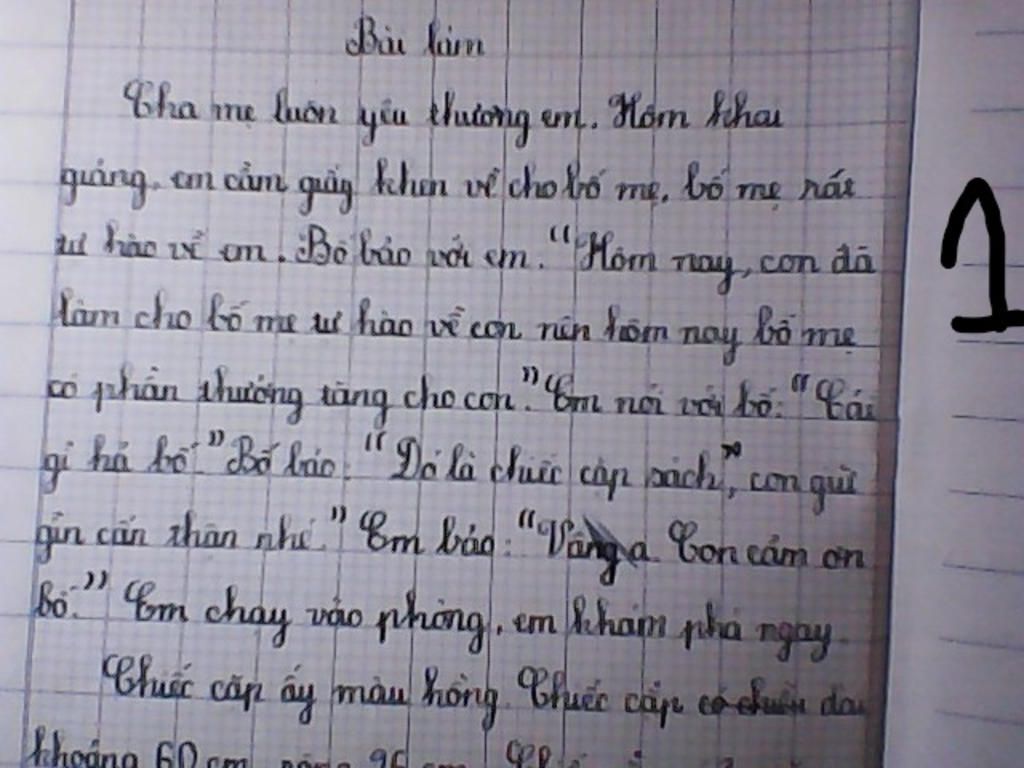 Bài làm
Cha mẹ luôn yêu thương em. Hôm khai
giảng, em cầm giấy khen về cho bố mẹ, bố mẹ rất
tự hào về em. Bố bảo với em. "Hôm nay, con đã
làm cho bố mẹ tự hào về con nên hôm nay bố mẹ
có phần thưởng tặng cho con." Em nói với bố: "Cái
gì hả bố" Bố bảo: "Đó là chiếc cặp sách", con giữ
gìn cẩn thận nhé." Em bảo: "Vâng ạ Con cảm ơn
bố." Em chạy vào phòng, em khám phá ngay
Chiếc cặp ấy màu hồng. Chiếc cặp có chiều dài
khoảng 60 cm,
1